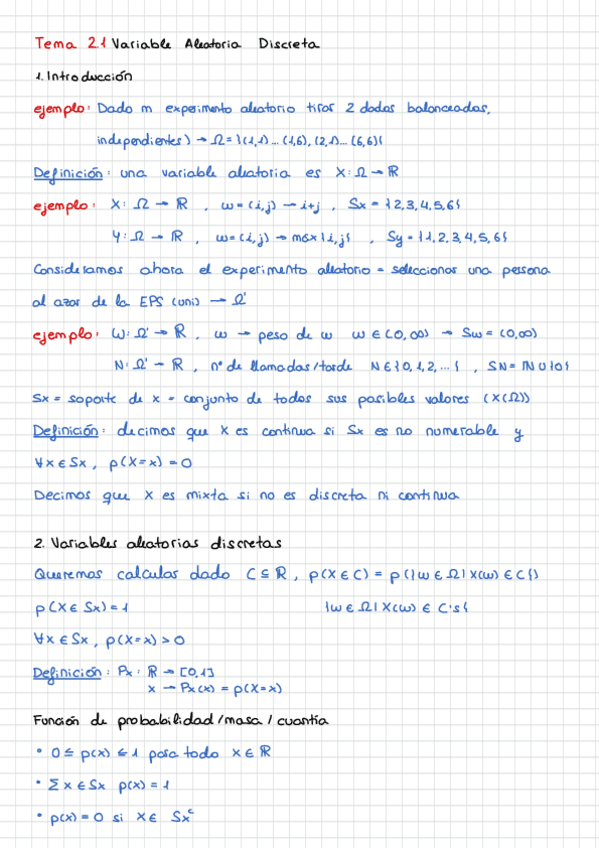 Tema 2.1 Variable Aleatoria Discreta
1. Introducción
ejemplo: Dado m experimento aleatorio tirar 2 dados balanceados,
independientes) → Ω = {(1,1)... (1,6), (2,1)... (6,6)}
Definición: una variable aleatoria es X: Ω → ℝ
ejemplo: X: Ω → ℝ , ω = (i,j) → i+j , Sx = {2,3,4,5,6}
Y: Ω → ℝ , ω = (i,j) → máx{i,j} , Sy = {1,2,3,4,5,6}
Consideramos ahora el experimento aleatorio = seleccionar una persona
al azar de la EPS (uni) → Ω'
ejemplo: W: Ω' → ℝ , ω → peso de ω ω ∈ (0,∞) → Sω = (0,∞)
N: Ω' → ℝ , nº de llamadas/tarde N ∈ {0,1,2,...} , SN = ℕ ∪ {0}
Sx = soporte de x = conjunto de todos sus posibles valores (X(Ω))
Definición: decimos que X es continua si Sx es no numerable y
∀x ∈ Sx , p(X=x) = 0
Decimos que X es mixta si no es discreta ni continua
2. Variables aleatorias discretas
Queremos calcular dado C ⊆ ℝ , p(X ∈ C) = p({ω ∈ Ω | X(ω) ∈ C})
p(X ∈ Sx) = 1 {ω ∈ Ω | X(ω) ∈ C's}
∀x ∈ Sx , p(X=x) > 0
Definición: Px: ℝ → [0,1]
x → Px(x) = p(X=x)
Función de probabilidad / masa / cuantía
• 0 ≤ p(x) ≤ 1 para todo x ∈ ℝ
• Σ x ∈ Sx p(x) = 1
• p(x) = 0 si x ∈ Sxᶜ